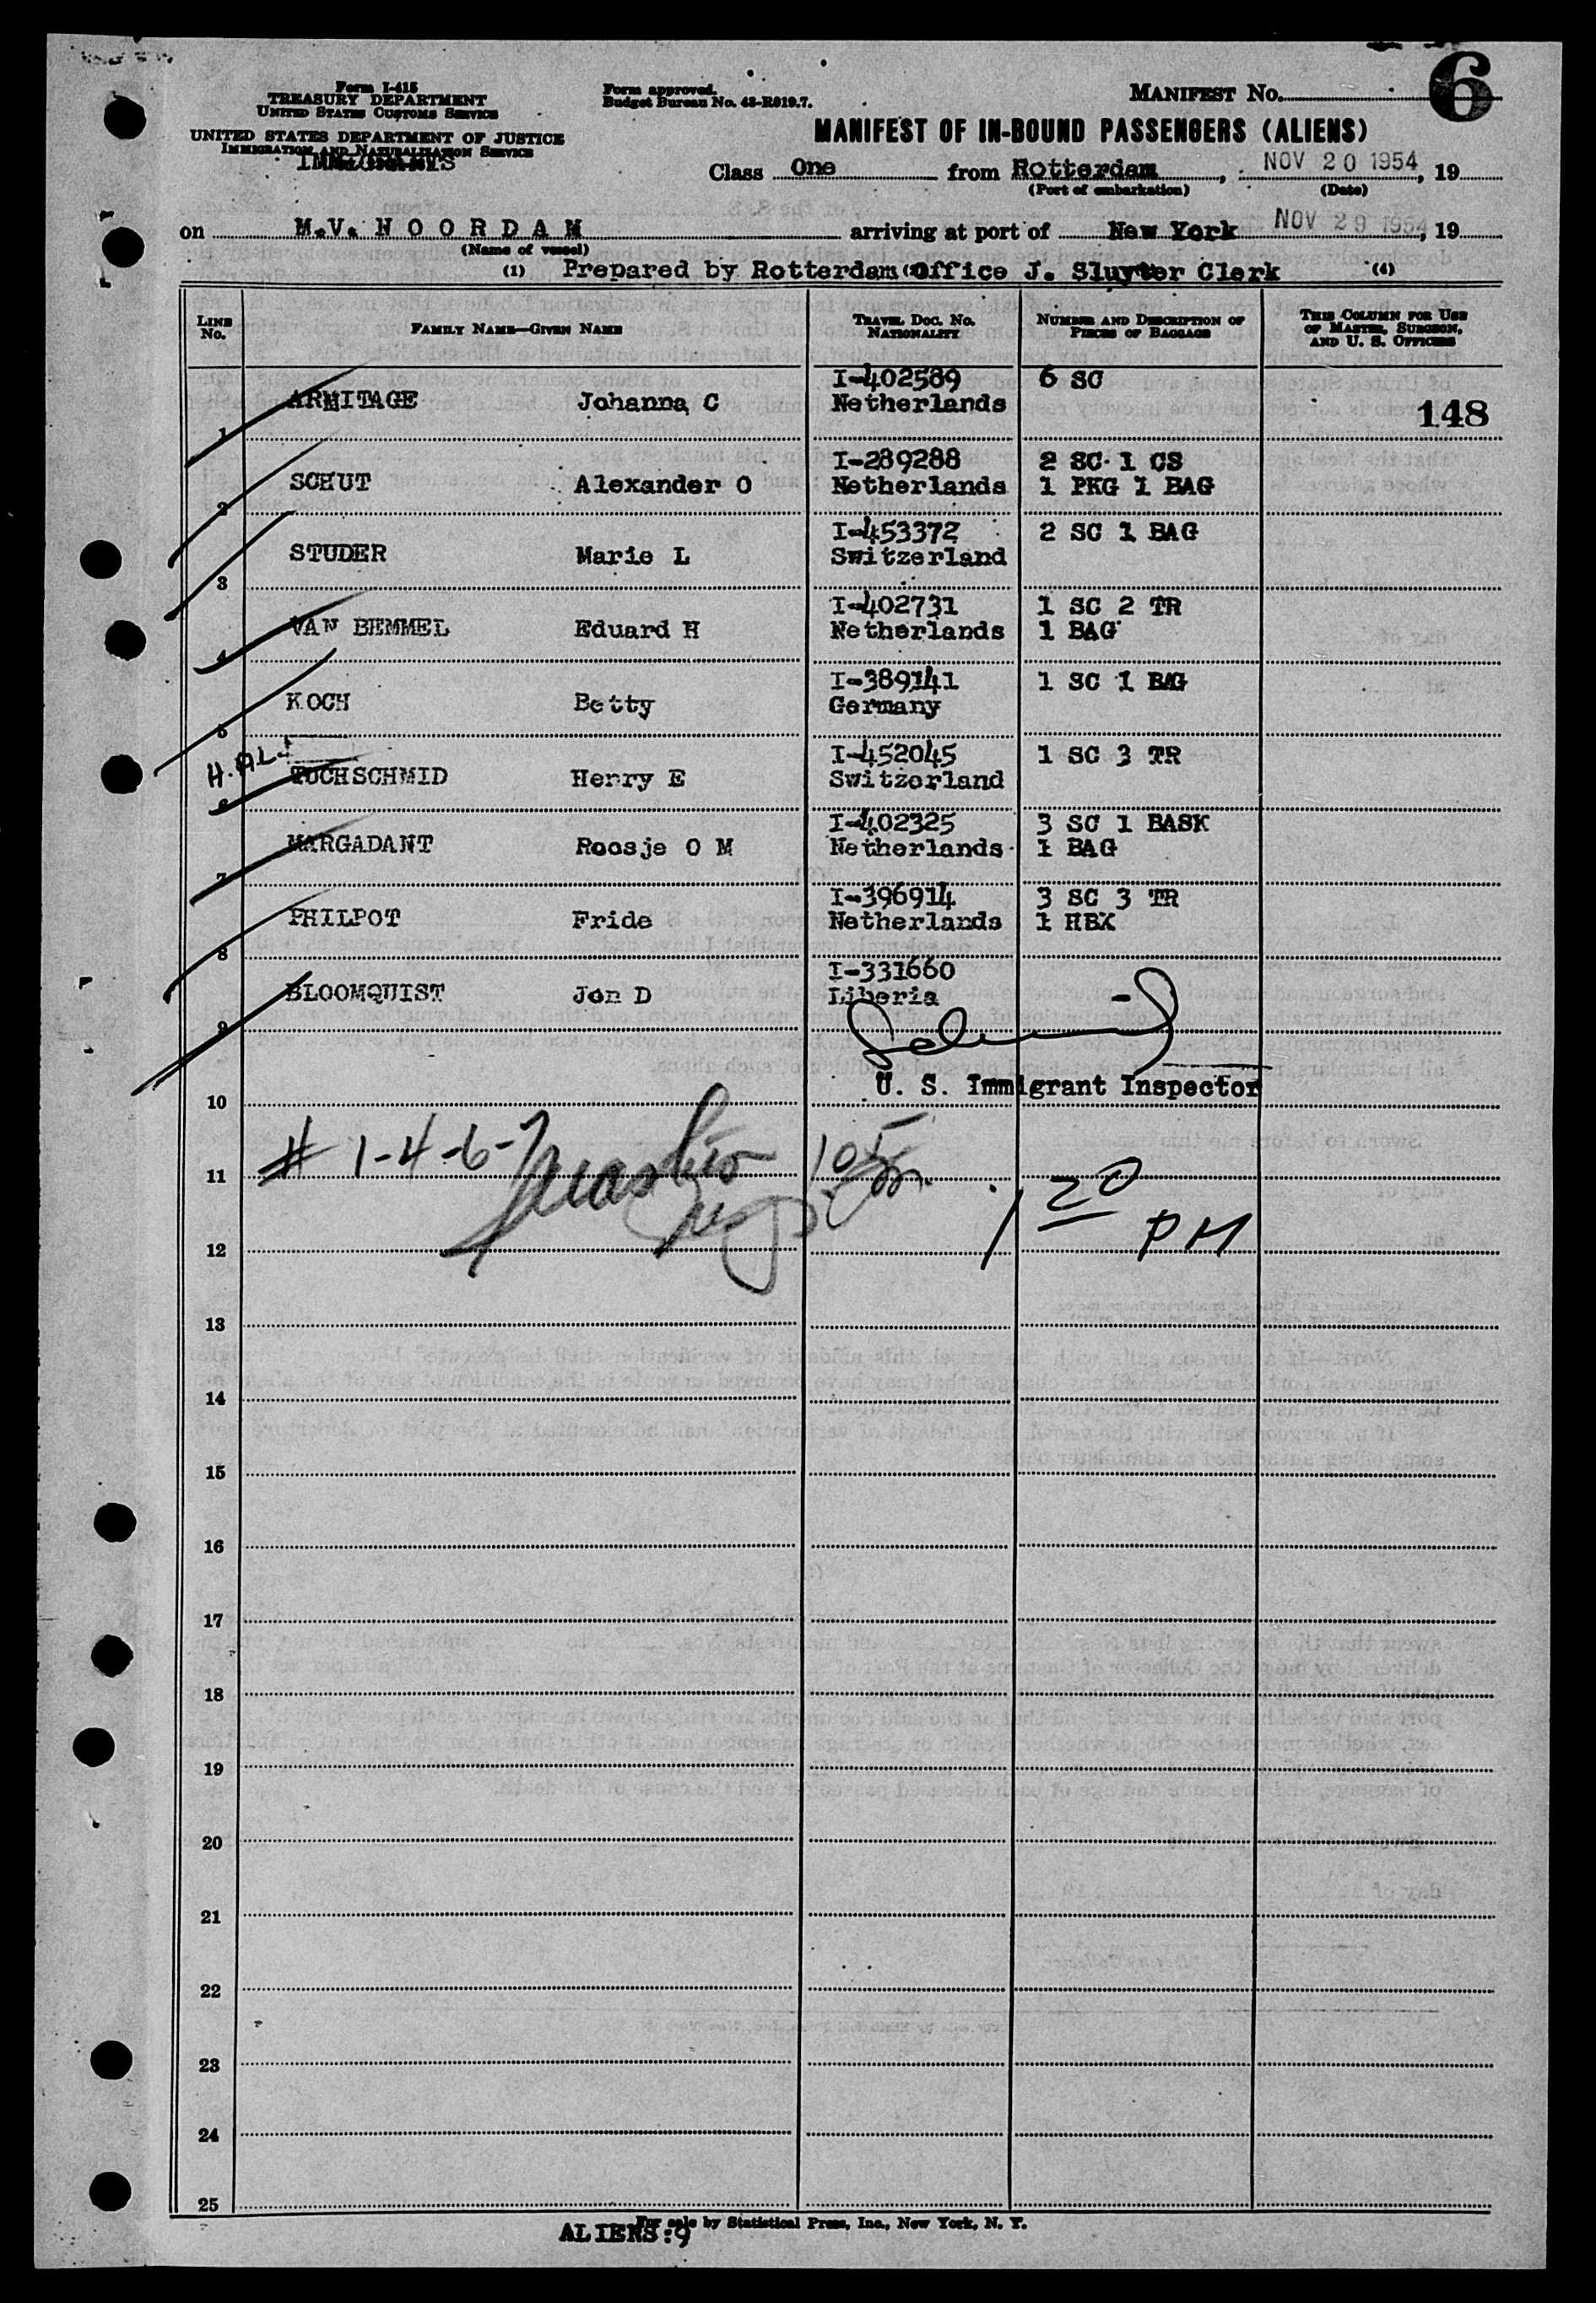 Form I-415
TREASURY DEPARTMENT
UNITED STATES CUSTOMS SERVICE
UNITED STATES DEPARTMENT OF JUSTICE
IMMIGRATION AND NATURALIZATION SERVICE
Form approved.
Budget Bureau No. 43-R019.7.
MANIFEST No. 6
MANIFEST OF IN-BOUND PASSENGERS (ALIENS)
Class One from Rotterdam, NOV 20 1954, 19
(Port of embarkation) (Date)
on M.V. NOORDAM arriving at port of New York NOV 29 1954, 19
(Name of vessel)
(1) Prepared by Rotterdam Office J. Sluyter Clerk (4)
LINE No. FAMILY NAME—GIVEN NAME TRAVEL DOC. No. NATIONALITY NUMBER AND DESCRIPTION OF PIECES OF BAGGAGE THIS COLUMN FOR USE OF MASTER, SURGEON, AND U. S. OFFICERS
I-402589 6 SC
ARMITAGE Johanna C Netherlands 148
1
I-289288 2 SC 1 CS
SCHUT Alexander O Netherlands 1 PKG 1 BAG
2
I-453372 2 SC 1 BAG
STUDER Marie L Switzerland
3
I-402731 1 SC 2 TR
VAN BEMMEL Eduard H Netherlands 1 BAG
4
I-389141 1 SC 1 BAG
KOCH Betty Germany
5
H.AL. I-452045 1 SC 3 TR
TUCHSCHMID Henry E Switzerland
6
I-402325 3 SC 1 BASK
MARGADANT Roosje O M Netherlands 1 BAG
7
I-396914 3 SC 3 TR
PHILPOT Fride Netherlands 1 HBX
8
I-331660
BLOOMQUIST Jon D Liberia
9
U. S. Immigrant Inspector
10
# 1-4-6-7
11
1 20 PM
12
13
14
15
16
17
18
19
20
21
22
23
24
25
For sale by Statistical Press, Inc., New York, N. Y.
ALIENS:9